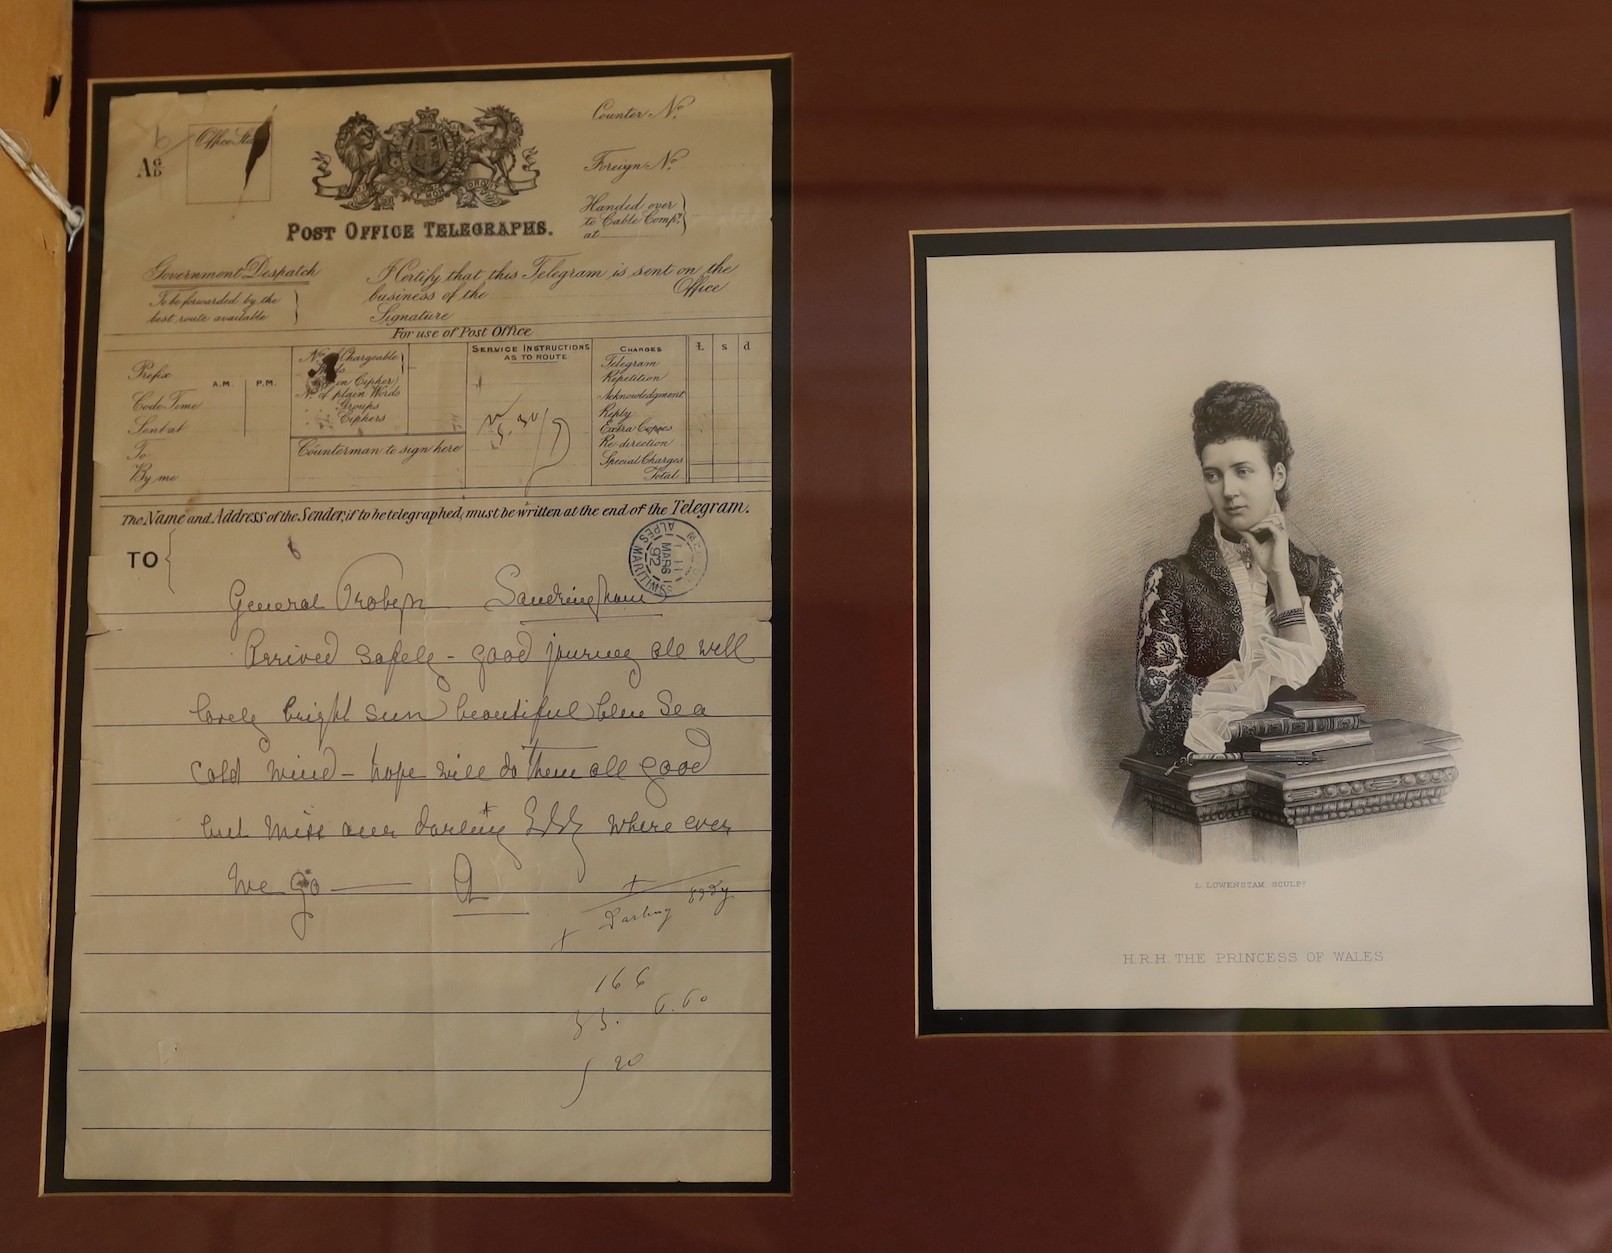 Office Sta
A8
POST OFFICE TELEGRAPHS.
Counter No.
Foreign No.
Handed over
to Cable Compy.
at
Government Despatch
To be forwarded by the
best route available
I Certify that this Telegram is sent on the
business of the Office
Signature
For use of Post Office
Prefix
A.M. P.M.
Code Time
Sent at
To
By me
Chargeable
in Cipher)
No. of plain Words
Groups
Ciphers
Counterman to sign here
SERVICE INSTRUCTIONS
AS TO ROUTE
CHARGES £ s d
Telegram
Repetition
Acknowledgment
Reply
Extra Copies
Re-direction
Special Charges
Total
The Name and Address of the Sender, if to be telegraphed, must be written at the end of the Telegram.
TO
MARS
92
ALPES MARITIMES
General Probyn Sandringham
Arrived safely - good journey all well
lovely bright sun beautiful blue Sea
cold wind - hope will do them all good
but miss our darling + Eddy where ever
we go — A
+ Eddy
+ Darling
16 6
33. 6.60
20
L. LOWENSTAM SCULPT
H.R.H. THE PRINCESS OF WALES